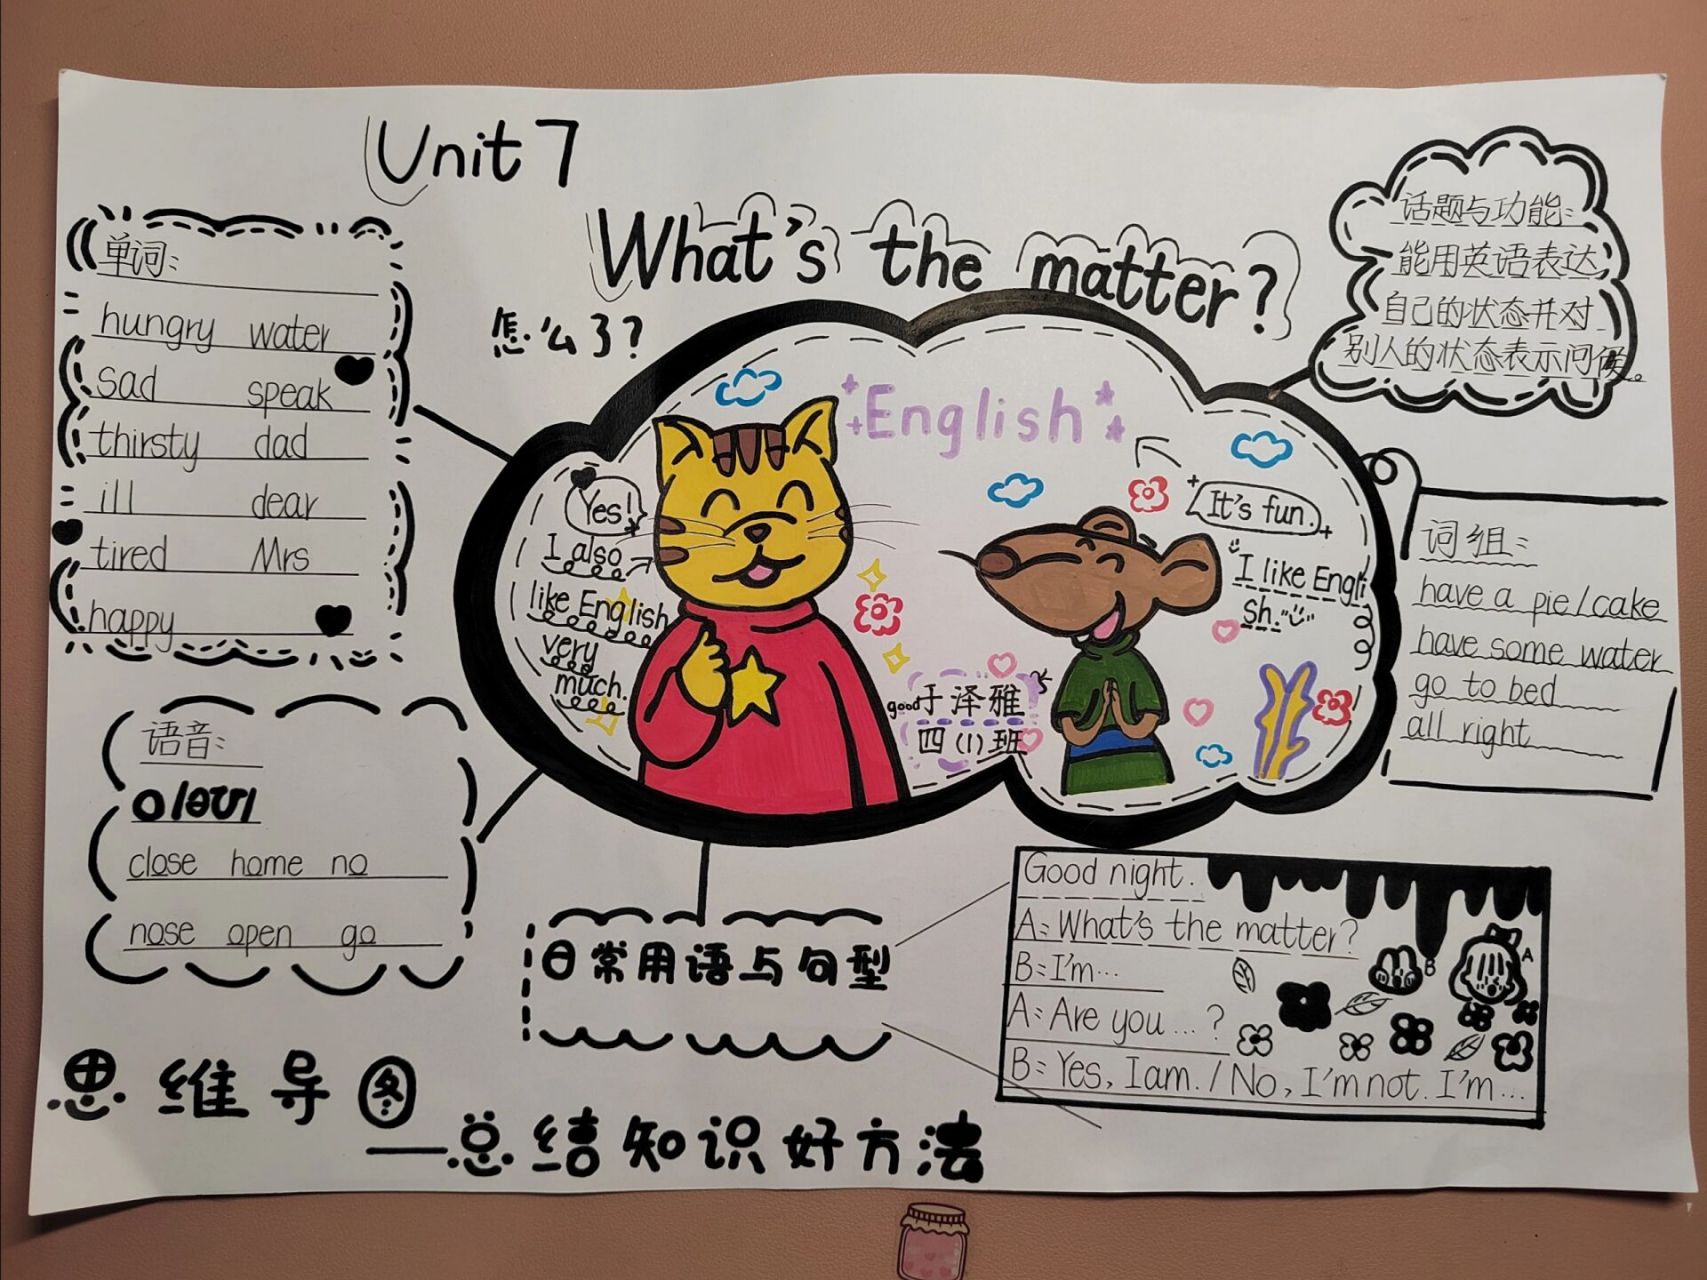 Unit 7
What's the matter?
怎么了?
单词:
hungry water
sad speak
thirsty dad
ill dear
tired Mrs
happy
语音:
o /əʊ/
close home no
nose open go
English
Yes!
I also
like English
very
much.
It's fun.
I like Engli
sh.
good于泽雅
四(1)班
话题与功能:
能用英语表达
自己的状态并对
别人的状态表示问候。
词组:
have a pie/cake
have some water
go to bed
all right
日常用语与句型
Good night.
A: What's the matter?
B: I'm...
A: Are you ... ?
B: Yes, I am. / No, I'm not. I'm...
B
A
思维导图
——总结知识好方法